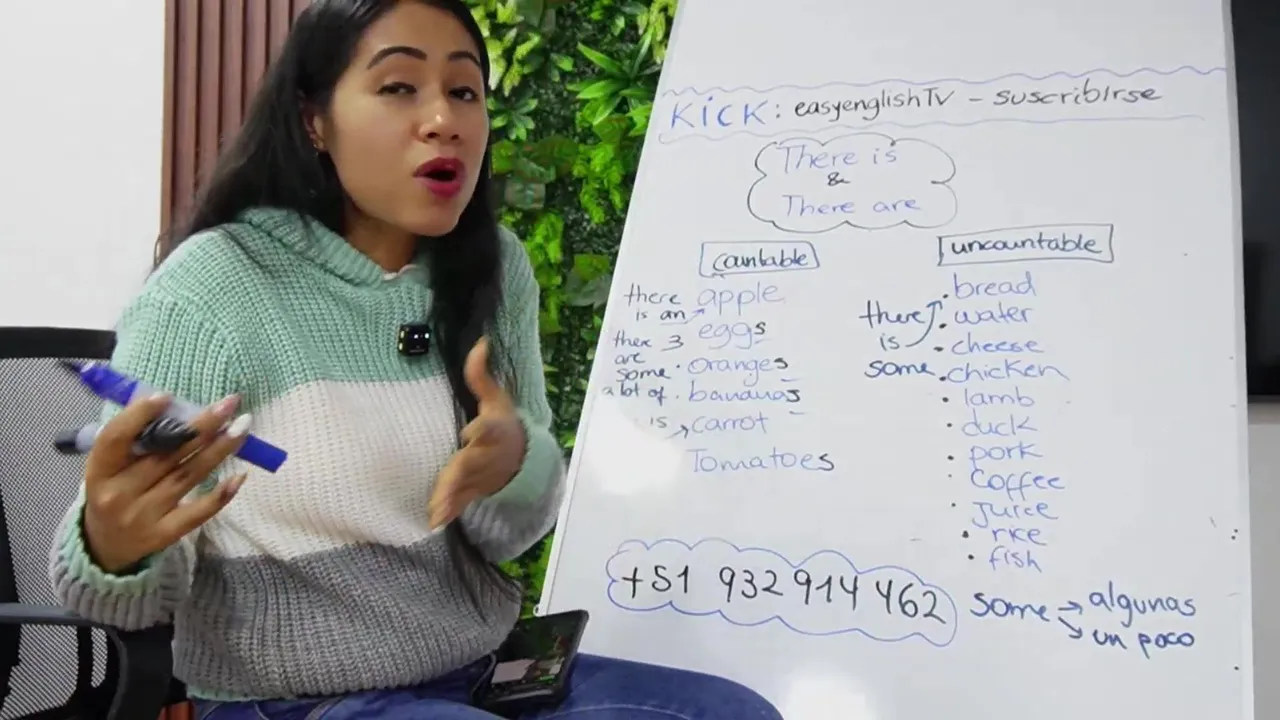 KiCK: easyenglishTV - suscribirse
There is
&
There are
countable
there is an apple
there are 3 eggs
some oranges
a lot of bananas
is carrot
Tomatoes
uncountable
there is some
bread
water
cheese
chicken
lamb
duck
pork
Coffee
Juice
rice
fish
+51 932 914 462
some → algunas
→ un poco